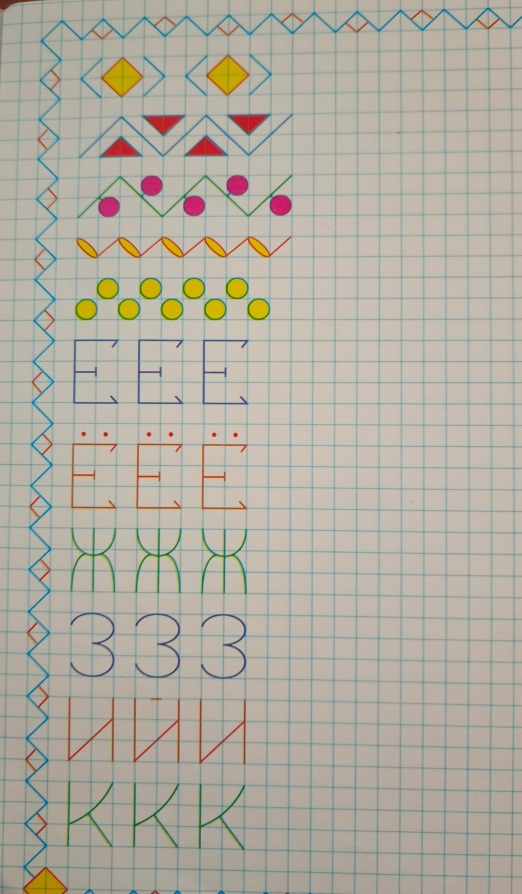 Е Е Е
Ё Ё Ё
Ж Ж Ж
З З З
И Й И
К К К